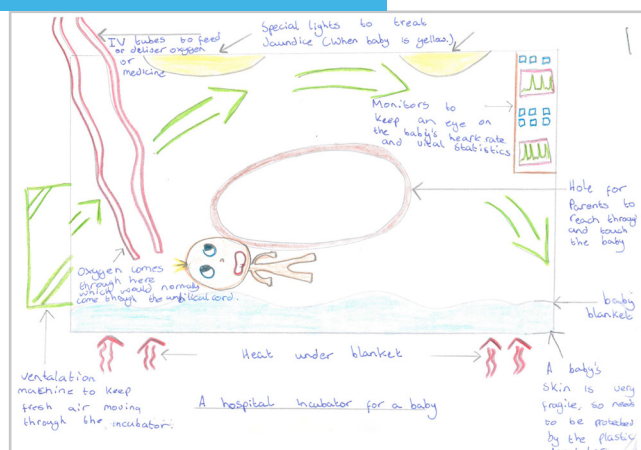 IV tubes to feed
or deliver oxygen
or
medicine
Special lights to treat
Jaundice (When baby is yellow.)
Monitors to
keep an eye on
the baby's heart rate
and vital statistics
Hole for
Parents to
reach through
and touch
the baby
Oxygen comes
through here
which would normaly
come through the umbilical cord.
baby
blanket
Heat under blanket
ventalation
machine to keep
fresh air moving
through the incubator.
A hospital incubator for a baby
A baby's
skin is very
fragile, so needs
to be protected
by the plastic